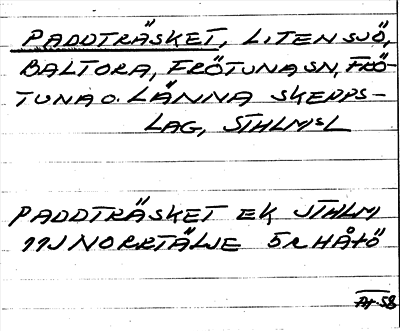 PADDTRÄSKET, LITEN SJÖ,
BALTORA, FRÖTUNA SN, FRÖ-
TUNA O. LÄNNA SKEPPS-
LAG, STHLMSL
PADDTRÄSKET EK STHLM
11J NORRTÄLJE 5R HÅTÖ